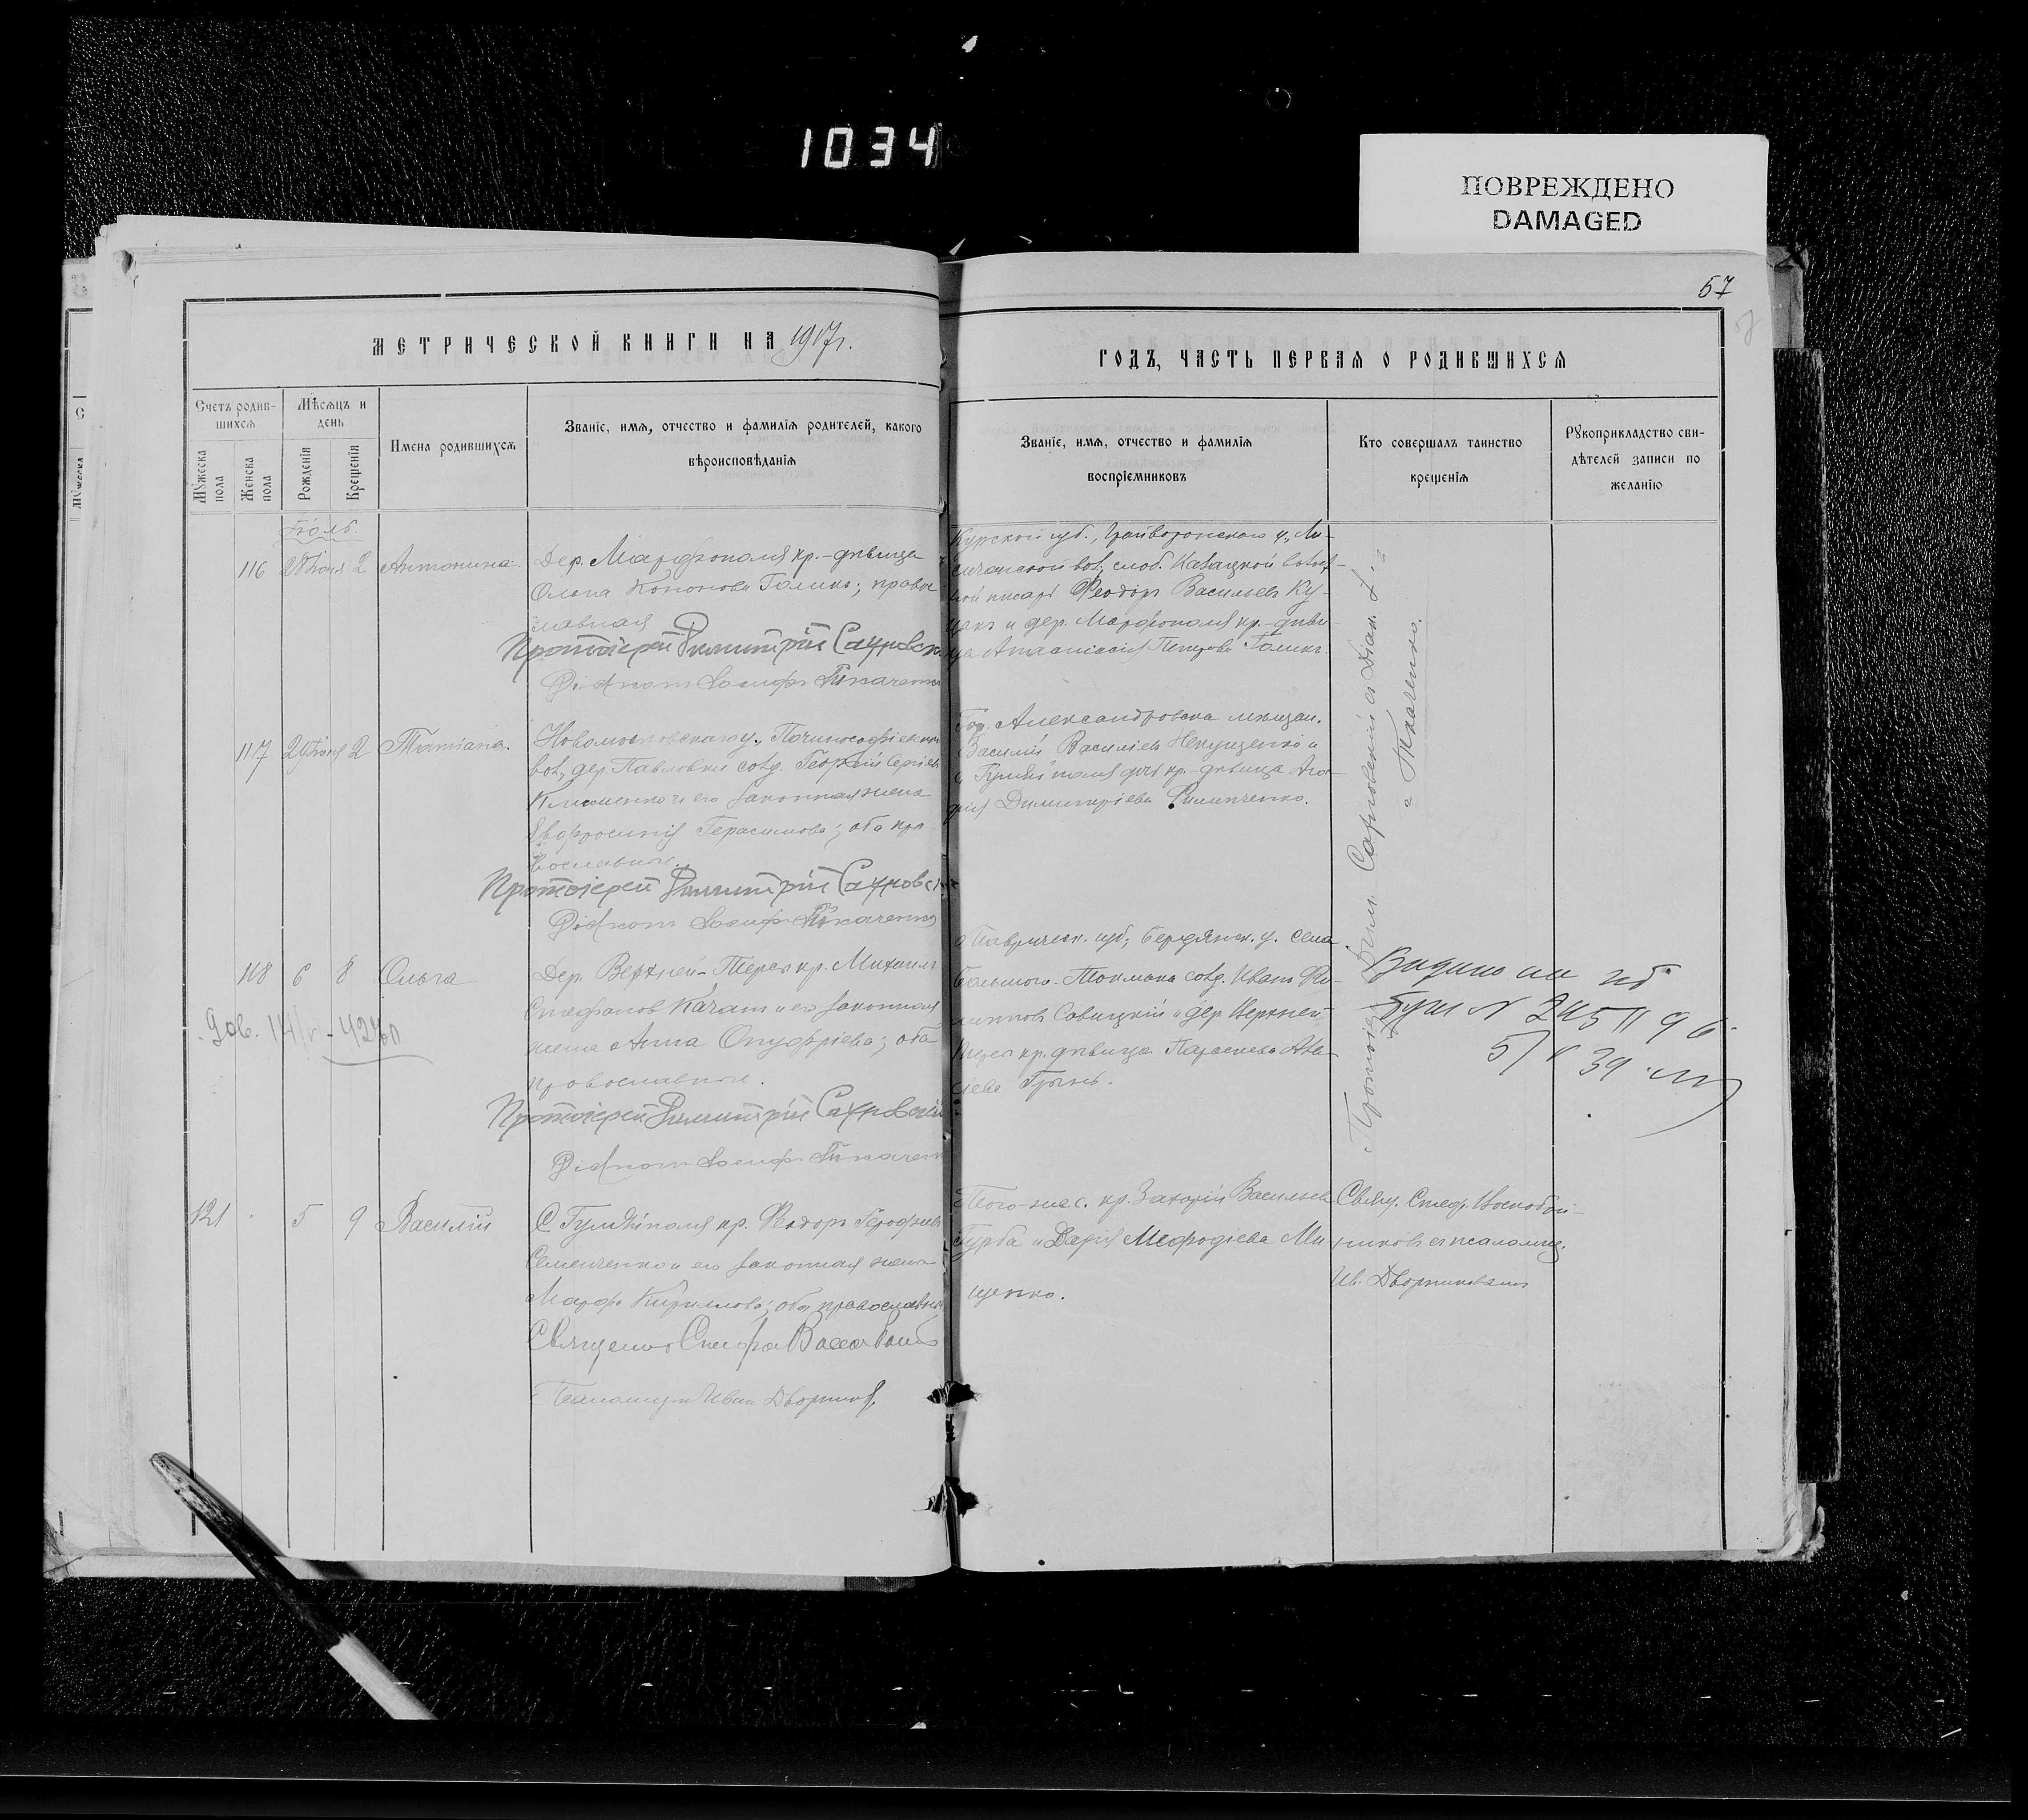 1034
ПОВРЕЖДЕНО
DAMAGED
57
МЕТРИЧЕСКОЙ КНИГИ НА 1917г.
ГОДЪ, ЧАСТЬ ПЕРВАЯ О РОДИВШИХСЯ
Счетъ родив-
шихся
Мужеска пола
Женска пола
Мѣсяцъ и
день
Рожденія
Крещенія
Имена родившихся
Званіе, имя, отчество и фамилія родителей, какого
вѣроисповѣданія
Званіе, имя, отчество и фамилія
воспріемниковъ
Кто совершалъ таинство
крещенія
Рукоприкладство сви-
дѣтелей записи по
желанію
Іюль.
116 28 Іюня 2 Антонина.
Дер. Марфополя кр.-дѣвица
Ольга Кононова Голикъ; правос
лавная
Протоіерей Димитрій Сахновск
Діаконъ Іосифъ Ткаченко
Курской губ., Грайворонскаго у., Ли-
сичанской вол., слоб. Казацкой волост-
ной писарь Феодоръ Васильевъ Ку-
цакъ и дер. Марфополя кр.-дѣви-
ца Анастасія Петрова Голикъ.
117 29 Іюня 2 Татіана.
Новомосковскаго у.,
вол., дер. Павловки солд. Георгій Сергіевъ
Клименко и его законная жена
Евфросинія Герасимова; оба пра-
вославные.
Протоіерей Димитрій Сахновск
Діаконъ Іосифъ Ткаченко
Гор. Александровска мѣщан.
Василій Василіевъ и
с Гуляйполя дочь кр.-дѣвица Ага-
фія Димитріева Филипченко.
118 6 8 Ольга
Дер. Верхней-Терсы кр. Михаилъ
Стефановъ Качанъ и его законная
жена Анна Онуфріева; оба
православные.
Протоіерей Димитрій Сахновскій
Діаконъ Іосифъ Ткачен
Таврическ. губ., Бердянск. у. села
Большого-Токмака солд. Иванъ Фи-
липповъ Савицкій и дер. Верхней
Терсы кр. дѣвица Параскева Ава-
сіева Гринь.
Протоіерей Дим. Сахновскій съ Діак. І.
Ткаченко.
121 5 9 Василій
С Гуляйполя кр. Феодоръ Герофеевъ
Семенченко и его законная жена
Марфа Кириллова; оба православные
Священникъ Стефанъ
Псаломщикъ Иван Дворниковъ
Того-же с. кр. Захарій Васильевъ
Турба и Дарія Мефодіева Ми-
щенко.
Свящ. Стеф. Воскобой-
никовъ съ псаломщ.
Ив. Дворниковымъ